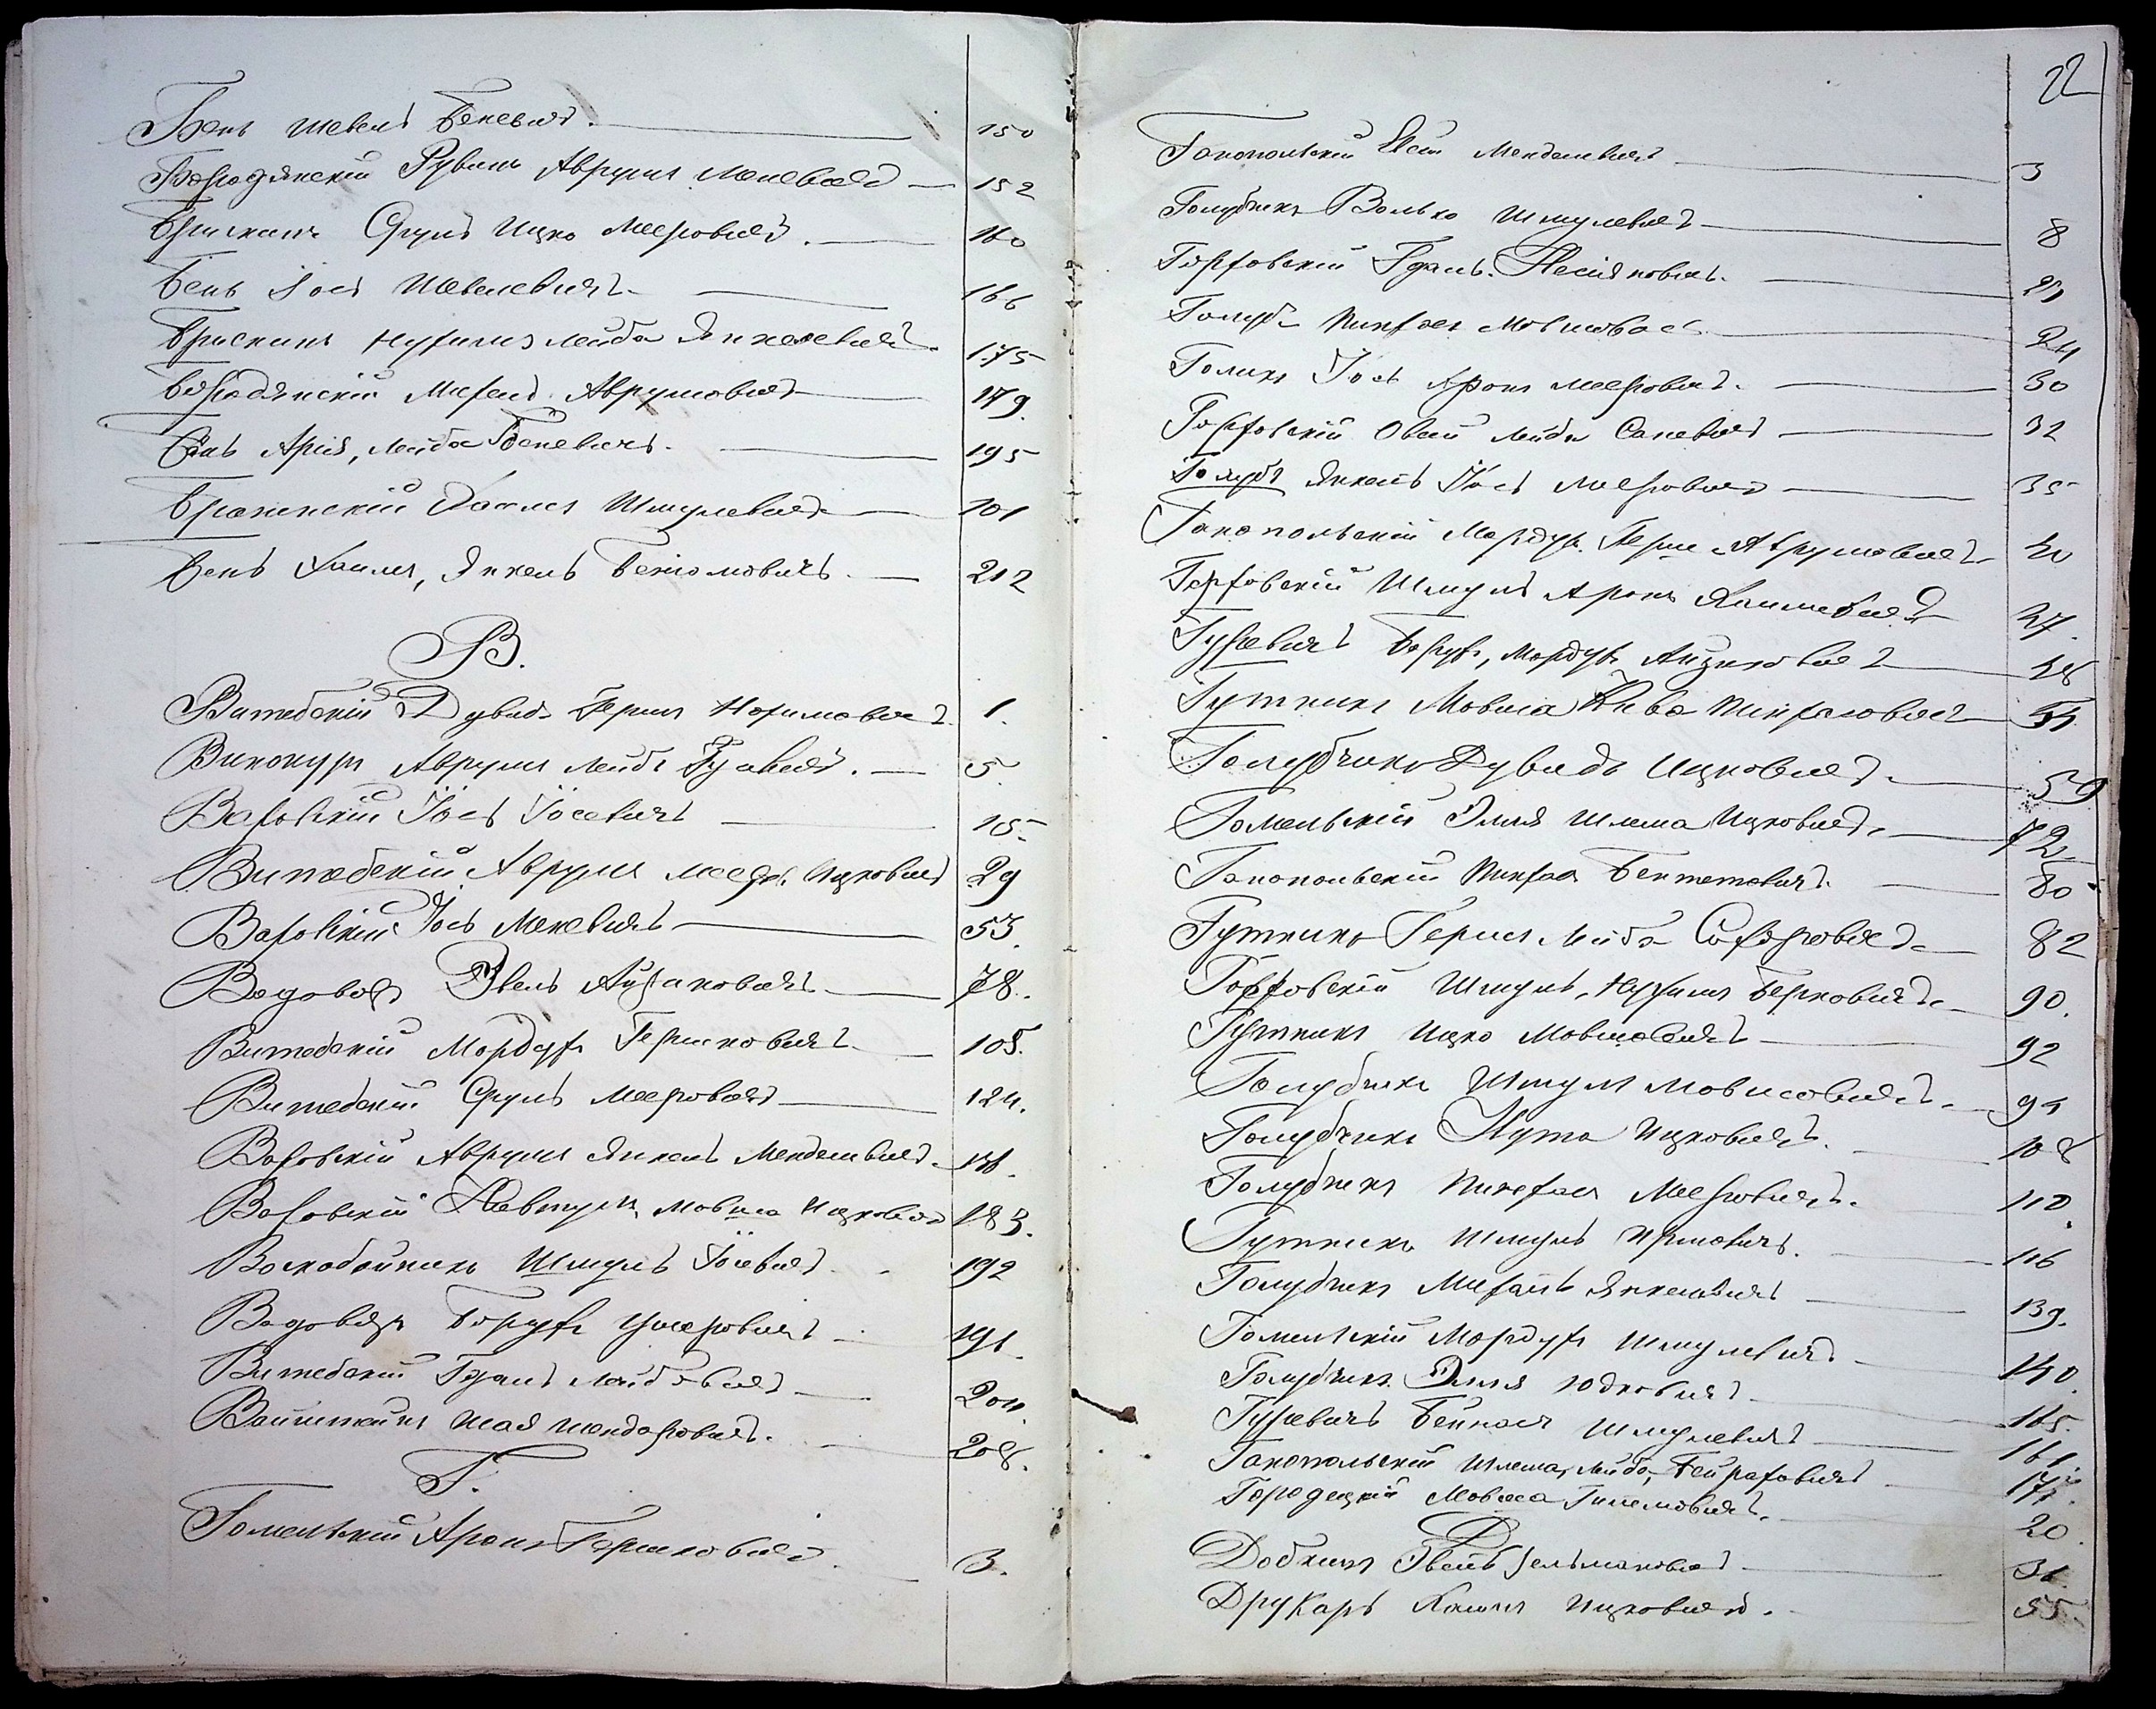 Бень Шевель Беневичъ. 150
Бородянскій Рувинъ Аврумъ Меневичъ 152
Брискинъ Сруль Ицко Мееровичъ. 160
Бень Іось Шевелевичъ 166
Брискинъ Нухимъ Лейба Янкелевичъ 175
Бородянскій Михель Аврумовичъ 179.
Бень Арія, Лейба Беневичъ. 195
Хаимъ Шмулевичъ 201
Бень Хаимъ, Янкель Беніомовичъ. 212
В.
Витебскій Дувидъ Гершъ Нохимовичъ 1.
Винокуръ Аврумъ Лейба 5.
Ваховскій Іось Іосевичъ 15.
Витебскій Аврумъ Мееръ Ицковичъ 29
Ваховскій Іось Меневичъ 53.
Водовозъ Эвель Айзиковичъ 78.
Витебскій Мордухъ Гершковичъ 105.
Витебскій Сруль Мееровичъ 124.
Ваховскій Аврумъ Янкель Менделевичъ
Ваховскій Мовша Ицковичъ 183.
Воскобойникъ Шмуль Іосевичъ 192
Водовозъ Борухъ Ушеровичъ 191.
Витебскій Гданъ Лейбовичъ 204.
Вайнштейнъ Шая Шендоровичъ. 208.
Г.
Гомельскій Аронъ Гершковичъ. 3.
22
Ганопольскій Менделевичъ 3
Голубчикъ Волько Шмулевичъ 8
Горховскій Гдаль 23
Голубъ Пинхасъ Мовшовичъ 24
Голикъ Іось Аронъ Мееровичъ. 30
Горховскій Овсій Лейба Саневичъ 32
Голубъ Янкель Іось Мееровичъ 35
Ганопольскій Мордухъ Гершъ Аврумовичъ 40
Горховскій Шмуль Аронъ Хаимовичъ 47.
Гуревичъ Борухъ, Мордухъ Айзиковичъ 48
Гутникъ Мовша Кива Пинхасовичъ 54.
Голубчикъ Дувидъ Ицковичъ 59
Гомельскій Эліа Шлема Ицковичъ 72
Ганопольскій Пинхасъ 80
Гутникъ Гершъ Лейба 82
Горховскій Шмуль, Нухимъ Берковичъ 90.
Гутникъ Ицко Мовшовичъ 92
Голубчикъ Шмуль Мовшовичъ 94
Голубчикъ Нута Ицковичъ. 108
Голубчикъ Пинхасъ Мееровичъ. 110.
Гутникъ Шмуль Ирмовичъ. 116
Голубчикъ Михель Янкелевичъ 139.
Гомельскій Мордухъ Шмулевичъ 140.
Голубчикъ Эліа Юдковичъ 145.
Гуревичъ Шмулевичъ 161.
Ганопольскій Шлема, Лейба, 171.
Городецкій Мовша 20
Д
Добкинъ Эвель 31.
Друкарь Хаимъ Ицковичъ. 55.